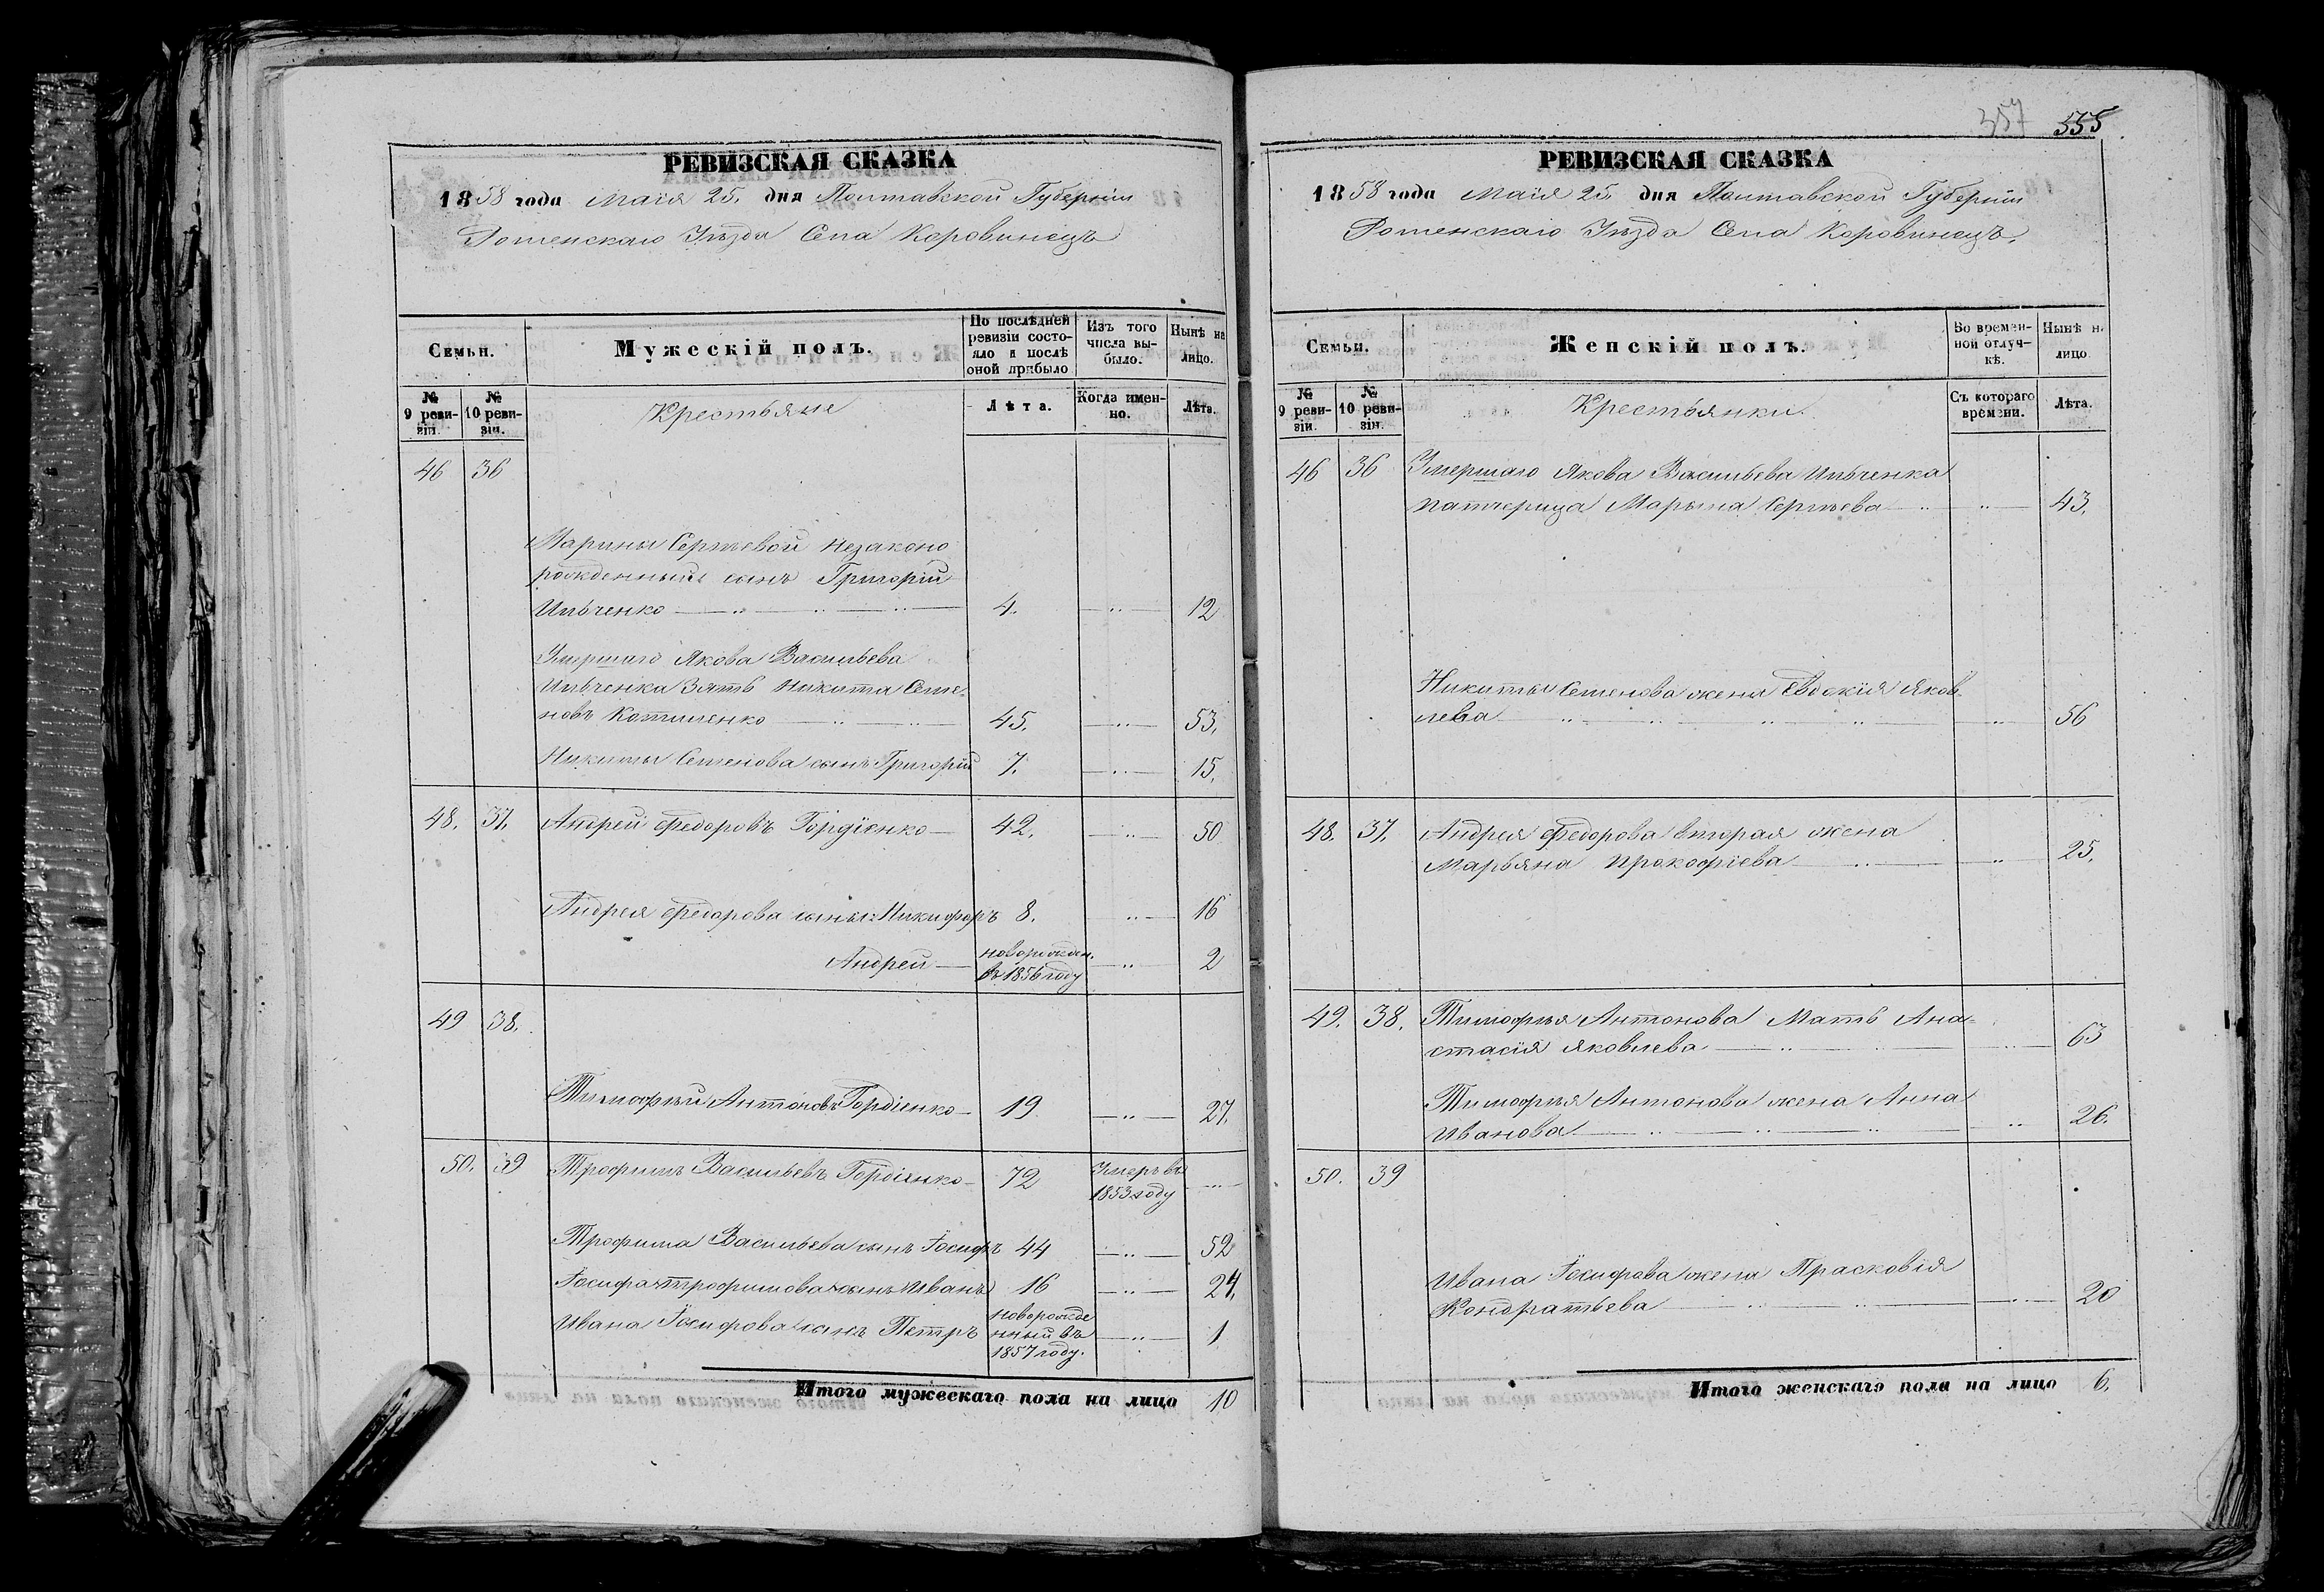 РЕВИЗСКАЯ СКАЗКА
1858 года Маія 25. дня Полтавской Губерніи
Роменскаго Уѣзда Села Коровинецъ
Семьи.
Мужескій полъ.
По послѣдней ревизіи состояло и послѣ оной прибыло
Изъ того числа выбыло.
Нынѣ на лицо.
№ 9 ревизіи.
№ 10 ревизіи.
Крестьяне
Лѣта.
Когда именно.
Лѣта.
46 36
Марины Сергѣевой незаконо
рожденный сынъ Григорій
Ильченко 4. 12
Умершаго Якова Васильева
Ильченка Зять Никита Семе-
новъ Котляренко 45. 53.
Никиты Семенова сынъ Григорій 7. 15.
48. 37. Андрей Федоровъ Гордіенко 42. 50
Андрея Федорова сыны: Никифоръ 8. 16
Андрей новорожден. въ 1856 году 2
49 38.
Тимофѣй Антоновъ Гордіенко 19. 27.
50. 39 Трофимъ Васильевъ Гордіенко 72 Умеръ въ 1853 году
Трофима Васильева сынъ Іосифъ 44 52
Іосифа Трофимова сынъ Иванъ 16 24.
Ивана Іосифова сынъ Петръ новорожде нный въ 1857 году. 1
Итого мужескаго пола на лицо 10
357 555
РЕВИЗСКАЯ СКАЗКА
1858 года Маія 25. дня Полтавской Губерніи
Роменскаго Уѣзда Села Коровинецъ.
Семьи.
Женскій полъ.
Во временной отлучкѣ.
Нынѣ н. лицо
№ 9 ревизіи.
№ 10 ревизіи.
Крестьянки.
Съ котораго времени.
Лѣта.
46 36 Умершаго Якова Васильева Ильченка
патчерица Марына Сергѣева 43.
Никиты Семенова жена Евдокія Яков-
лева 56
48. 37. Андрея Федорова вторая жена
Марьяна Прокофіева 25.
49. 38. Тимофѣя Антонова Мать Ана-
стасія Яковлева 63
Тимофѣя Антонова жена Анна
Иванова 26.
50. 39
Ивана Іосифова жена Прасковія
Кондратьева 20
Итого женскаго пола на лицо 6.